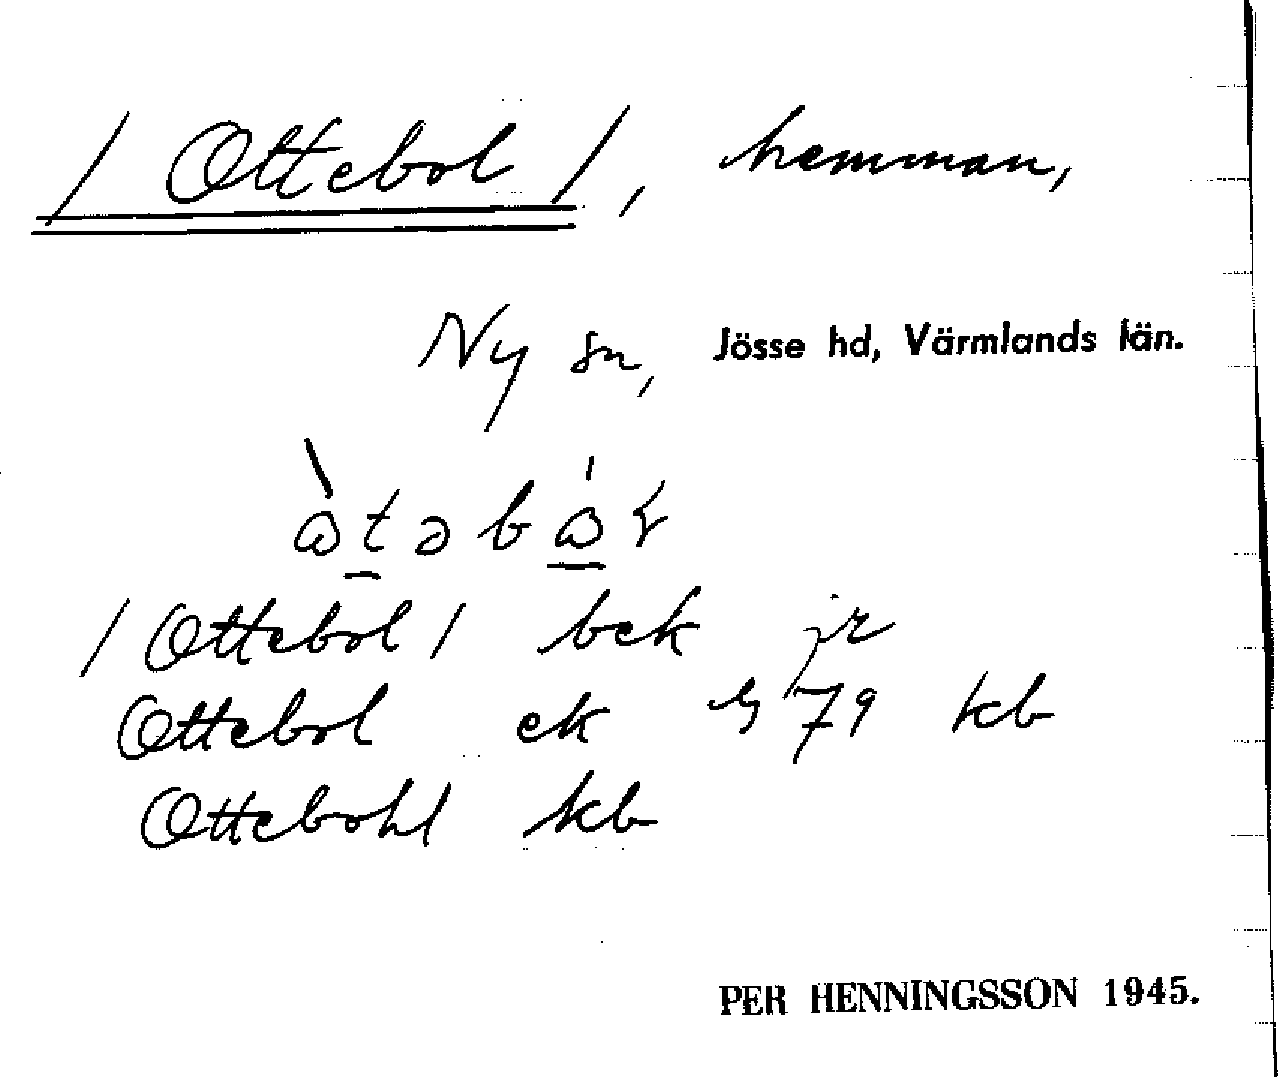 / Ottebol /, hemman,
Ny sn, Jösse hd, Värmlands län.
/ Ottebol / bek jr
Ottebol ek 79 kb
Ottebohl kb
PER HENNINGSSON 1945.